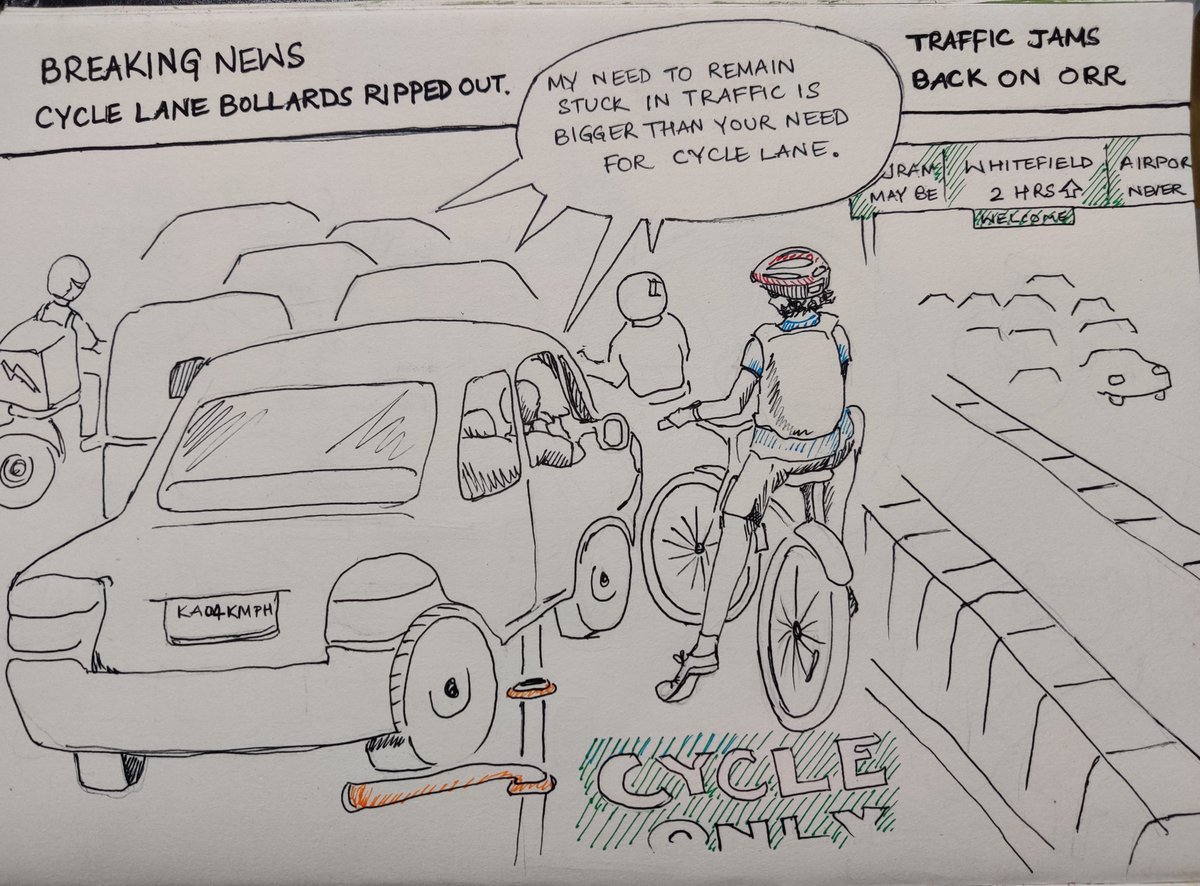 BREAKING NEWS
CYCLE LANE BOLLARDS RIPPED OUT.
MY NEED TO REMAIN
STUCK IN TRAFFIC IS
BIGGER THAN YOUR NEED
FOR CYCLE LANE.
TRAFFIC JAMS
BACK ON ORR
MAY BE
WHITEFIELD
2 HRS
WELCOME
AIRPOR
NEVER
KA04KMPH
CYCLE
ONLY